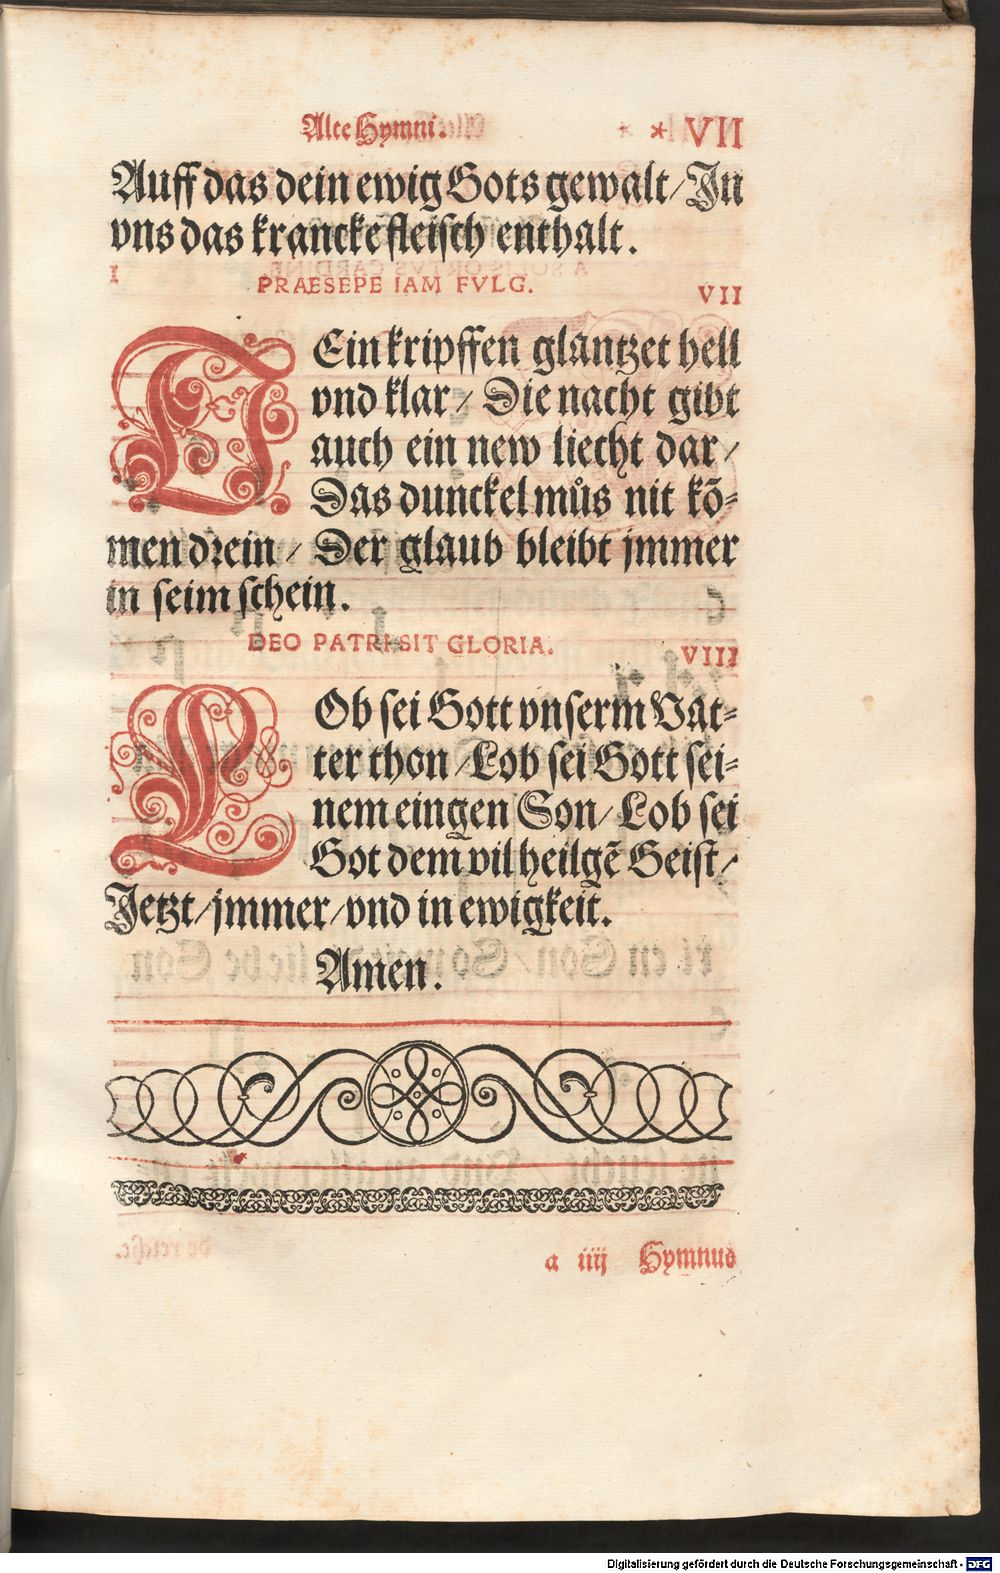 Alte Hymni. * VII
Auff das dein ewig Gots gewalt/ In
vns das krancke fleisch enthalt.
I PRAESEPE IAM FVLG. VII
DEin kripffen glantzet hell
vnd klar/ Die nacht gibt
auch ein new liecht dar/
Das dunckel můs nit kõ⸗
men drein/ Der glaub bleibt jmmer
in seim schein.
DEO PATRI SIT GLORIA. VIII
LOb sei Gott vnserm Vat⸗
ter thon/ Lob sei Gott sei⸗
nem eingen Son/ Lob sei
Got dem vil heilgẽ Geist/
Jetzt/ jmmer/ vnd in ewigkeit.
Amen.
a iiij Hymnus
Digitalisierung gefördert durch die Deutsche Forschungsgemeinschaft - DFG